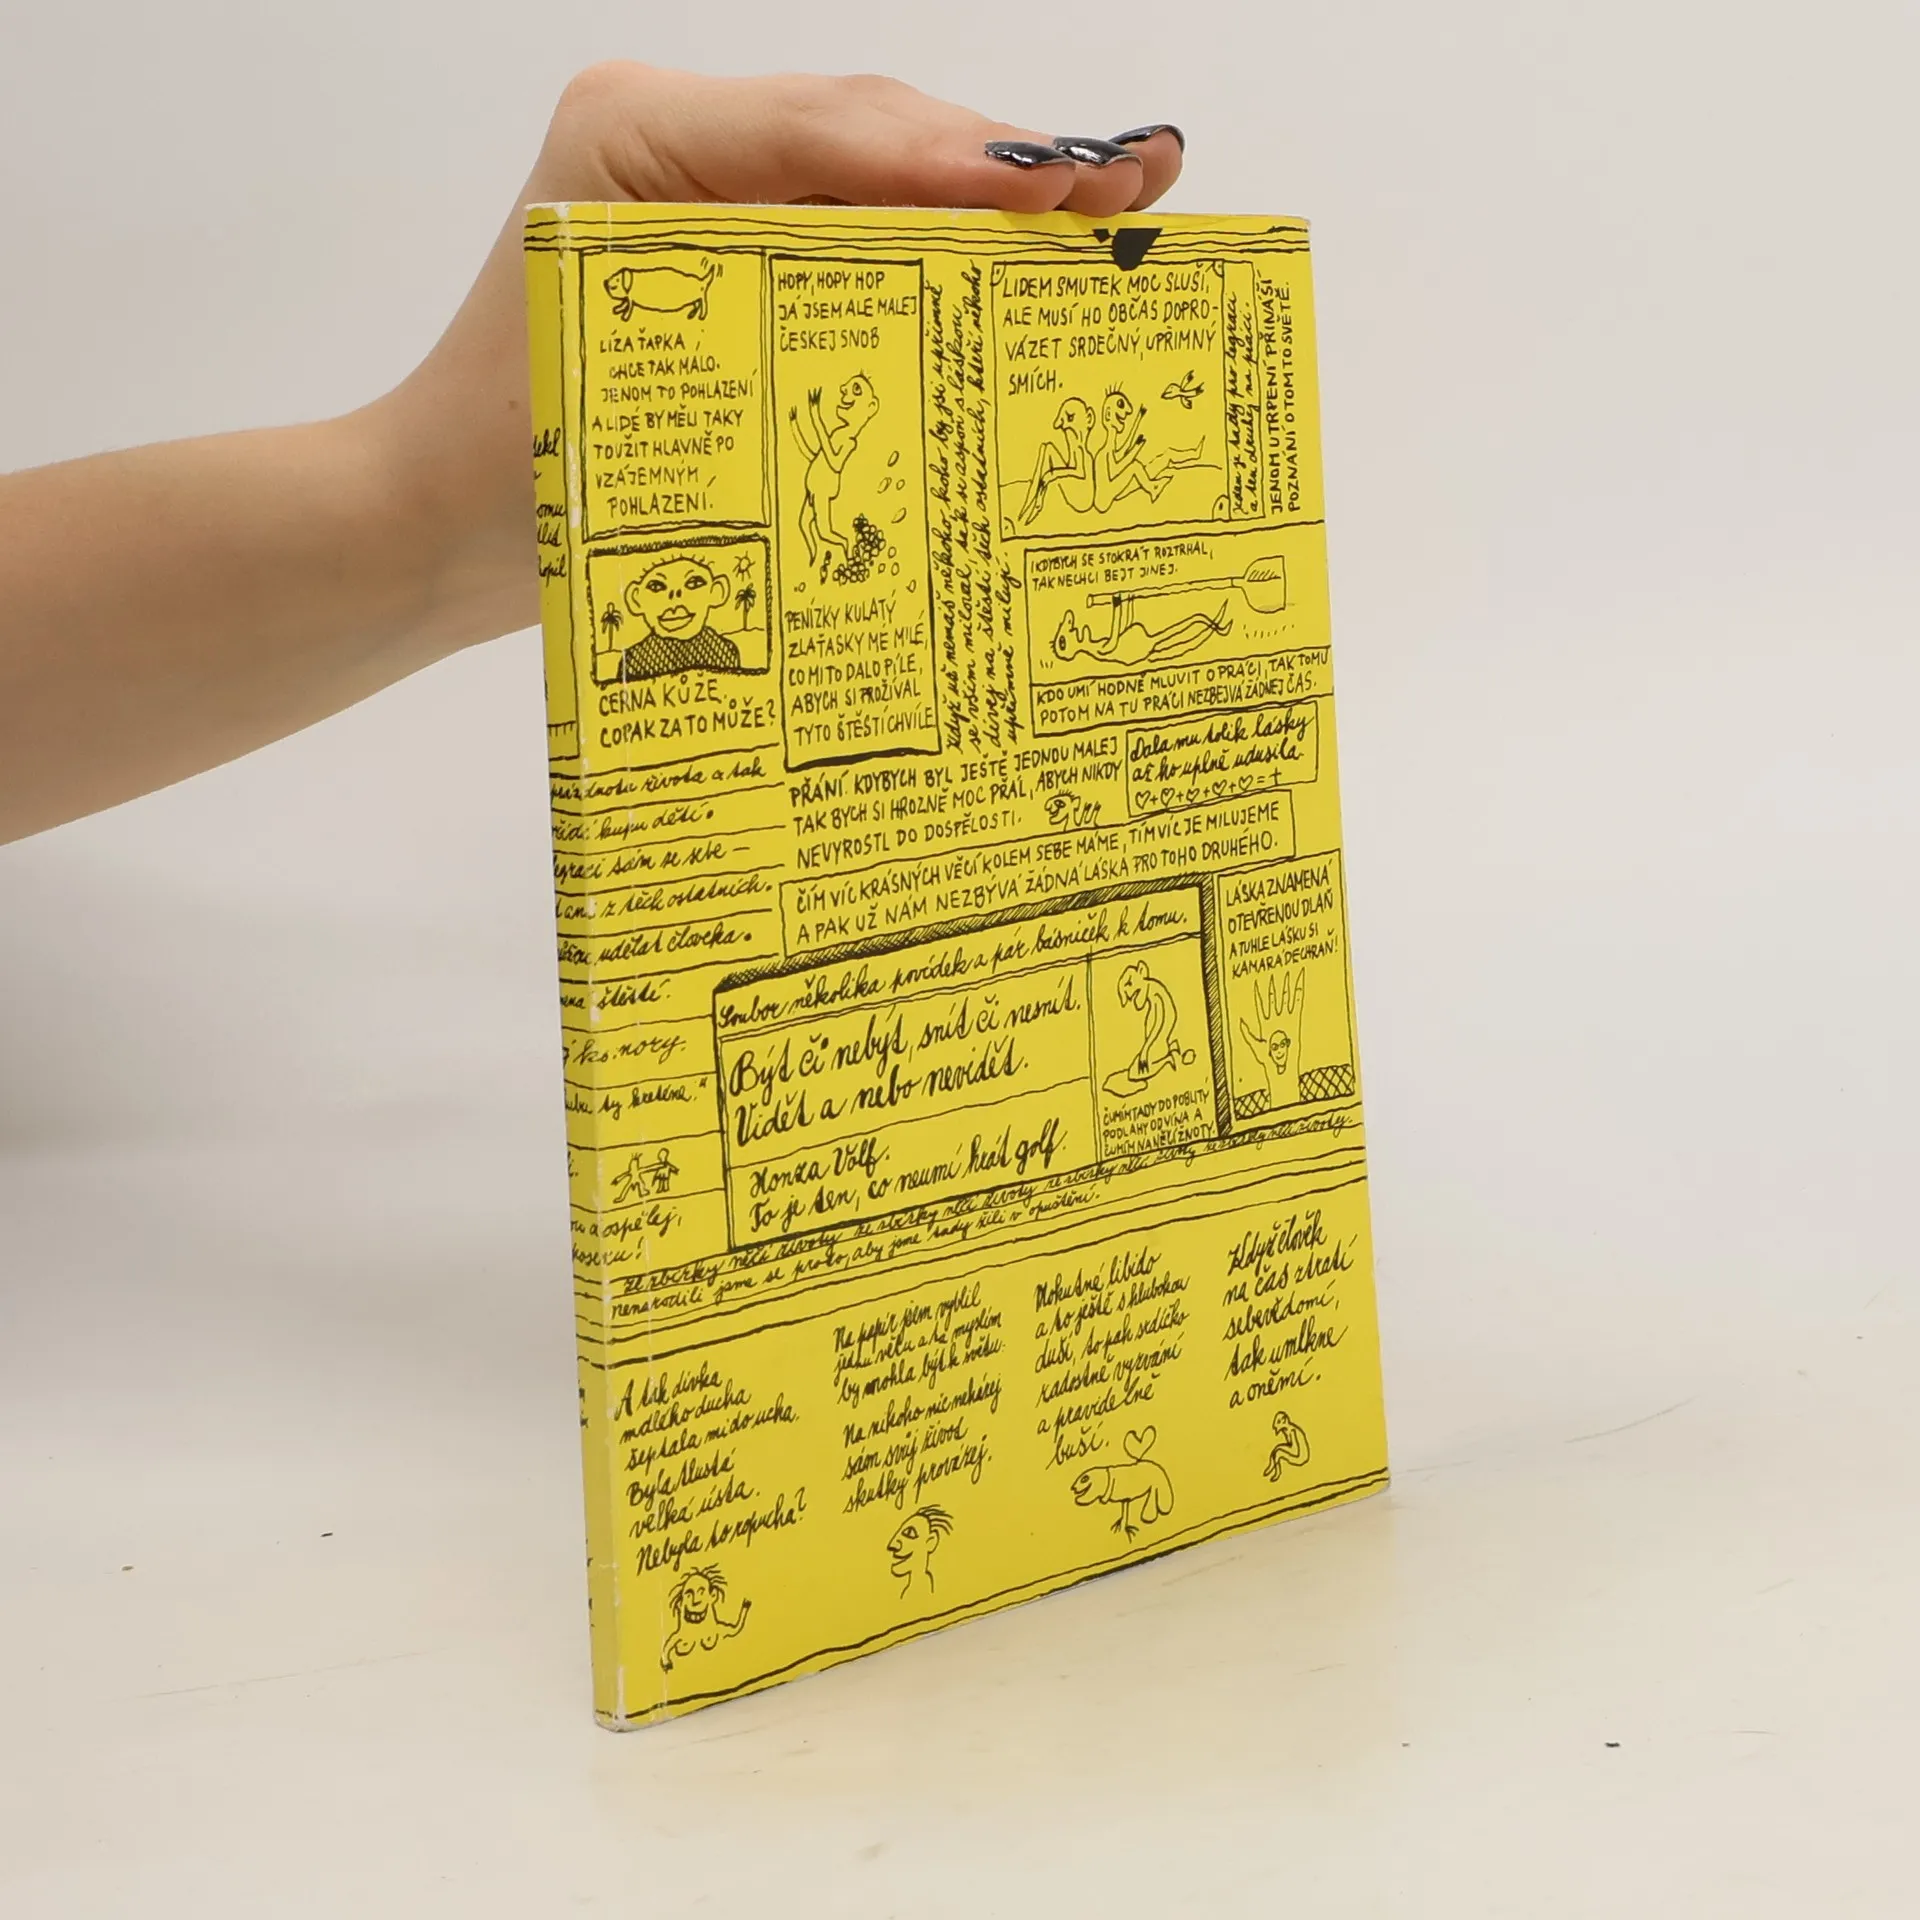 LÍZA ŤAPKA
CHCE TAK MÁLO.
JENOM TO POHLAZENÍ
A LIDÉ BY MĚLI TAKY
TOUŽIT HLAVNĚ PO
VZÁJEMNÝM
POHLAZENÍ.
ČERNÁ KŮŽE.
COPAK ZA TO MŮŽE?
HOPY, HOPY HOP
JÁ JSEM ALE MALEJ
ČESKEJ SNOB
PENÍZKY KULATÝ
ZLAŤÁSKY MÉ MILÉ,
CO MI TO DALO PÍLE,
ABYCH SI PROŽÍVAL
TYTO ŠTĚSTÍCHVÍLE
Když už nemáš někoho, koho by jsi upřímně
se vším miloval, tak se aspoň s láskou
dívej na štěstí těch ostatních, kteří někoho
upřímně milují.
LIDEM SMUTEK MOC SLUŠÍ,
ALE MUSÍ HO OBČAS DOPRO-
VÁZET SRDEČNÝ, UPŘÍMNÝ
SMÍCH.
Jeden je tady pro legraci
a ten druhej na práci.
JENOM UTRPENÍ PŘINÁŠÍ
POZNÁNÍ O TOMTO SVĚTĚ.
I KDYBYCH SE STOKRÁT ROZTRHAL,
TAK NECHCI BEJT JINEJ.
KDO UMÍ HODNĚ MLUVIT O PRÁCI, TAK TOMU
POTOM NA TU PRÁCI NEZBEJVÁ ŽÁDNEJ ČAS.
PŘÁNÍ. KDYBYCH BYL JEŠTĚ JEDNOU MALEJ
TAK BYCH SI HROZNĚ MOC PŘÁL, ABYCH NIKDY
NEVYROSTL DO DOSPĚLOSTI.
Dala mu tolik lásky
až ho úplně udusila.
♡+♡+♡+♡+♡=+
ČÍM VÍC KRÁSNÝCH VĚCÍ KOLEM SEBE MÁME, TÍM VÍC JE MILUJEME
A PAK UŽ NÁM NEZBÝVÁ ŽÁDNÁ LÁSKA PRO TOHO DRUHÉHO.
LÁSKA ZNAMENÁ
OTEVŘENOU DLAŇ
A TUHLE LÁSKU SI
KAMARÁDE CHRAŇ!
Soubor několika povídek a pár básniček k tomu.
Být či nebýt, snít či nesnít.
Vidět a nebo nevidět.
Honza Volf.
To je ten, co neumí hrát golf.
ČUMÍM TADY DO POBLITÝ
PODLAHY OD VÍNA A
ČUMÍM NA NĚČÍ ŽIVOTY.
života a tak
kupu dětí.
sám se sebe –
z těch ostatních.
udělat člověka.
štěstí.
nory.
ty kreténe."
dospělej,
ze sbírky něčí životy ze sbírky něčí životy ze sbírky něčí životy ze sbírky něčí životy.
nenarodili jsme se proto, aby jsme tady žili v opuštění.
A tak dívka
mdlého ducha
šeptala mi do ucha.
Byla tlustá
velká ústa.
Nebyla to ropucha?
Na papír jsem vyblil
jednu větu a ta myslím
by mohla být k světu.
Na nikoho nic neházej
sám svůj život
skutky provázej.
Mohutné libido
a to ještě s hlubokou
duší, to pak srdíčko
radostně vyzvání
a pravidelně
buší.
Když člověk
na čas ztratí
sebevědomí,
tak umlkne
a oněmí.